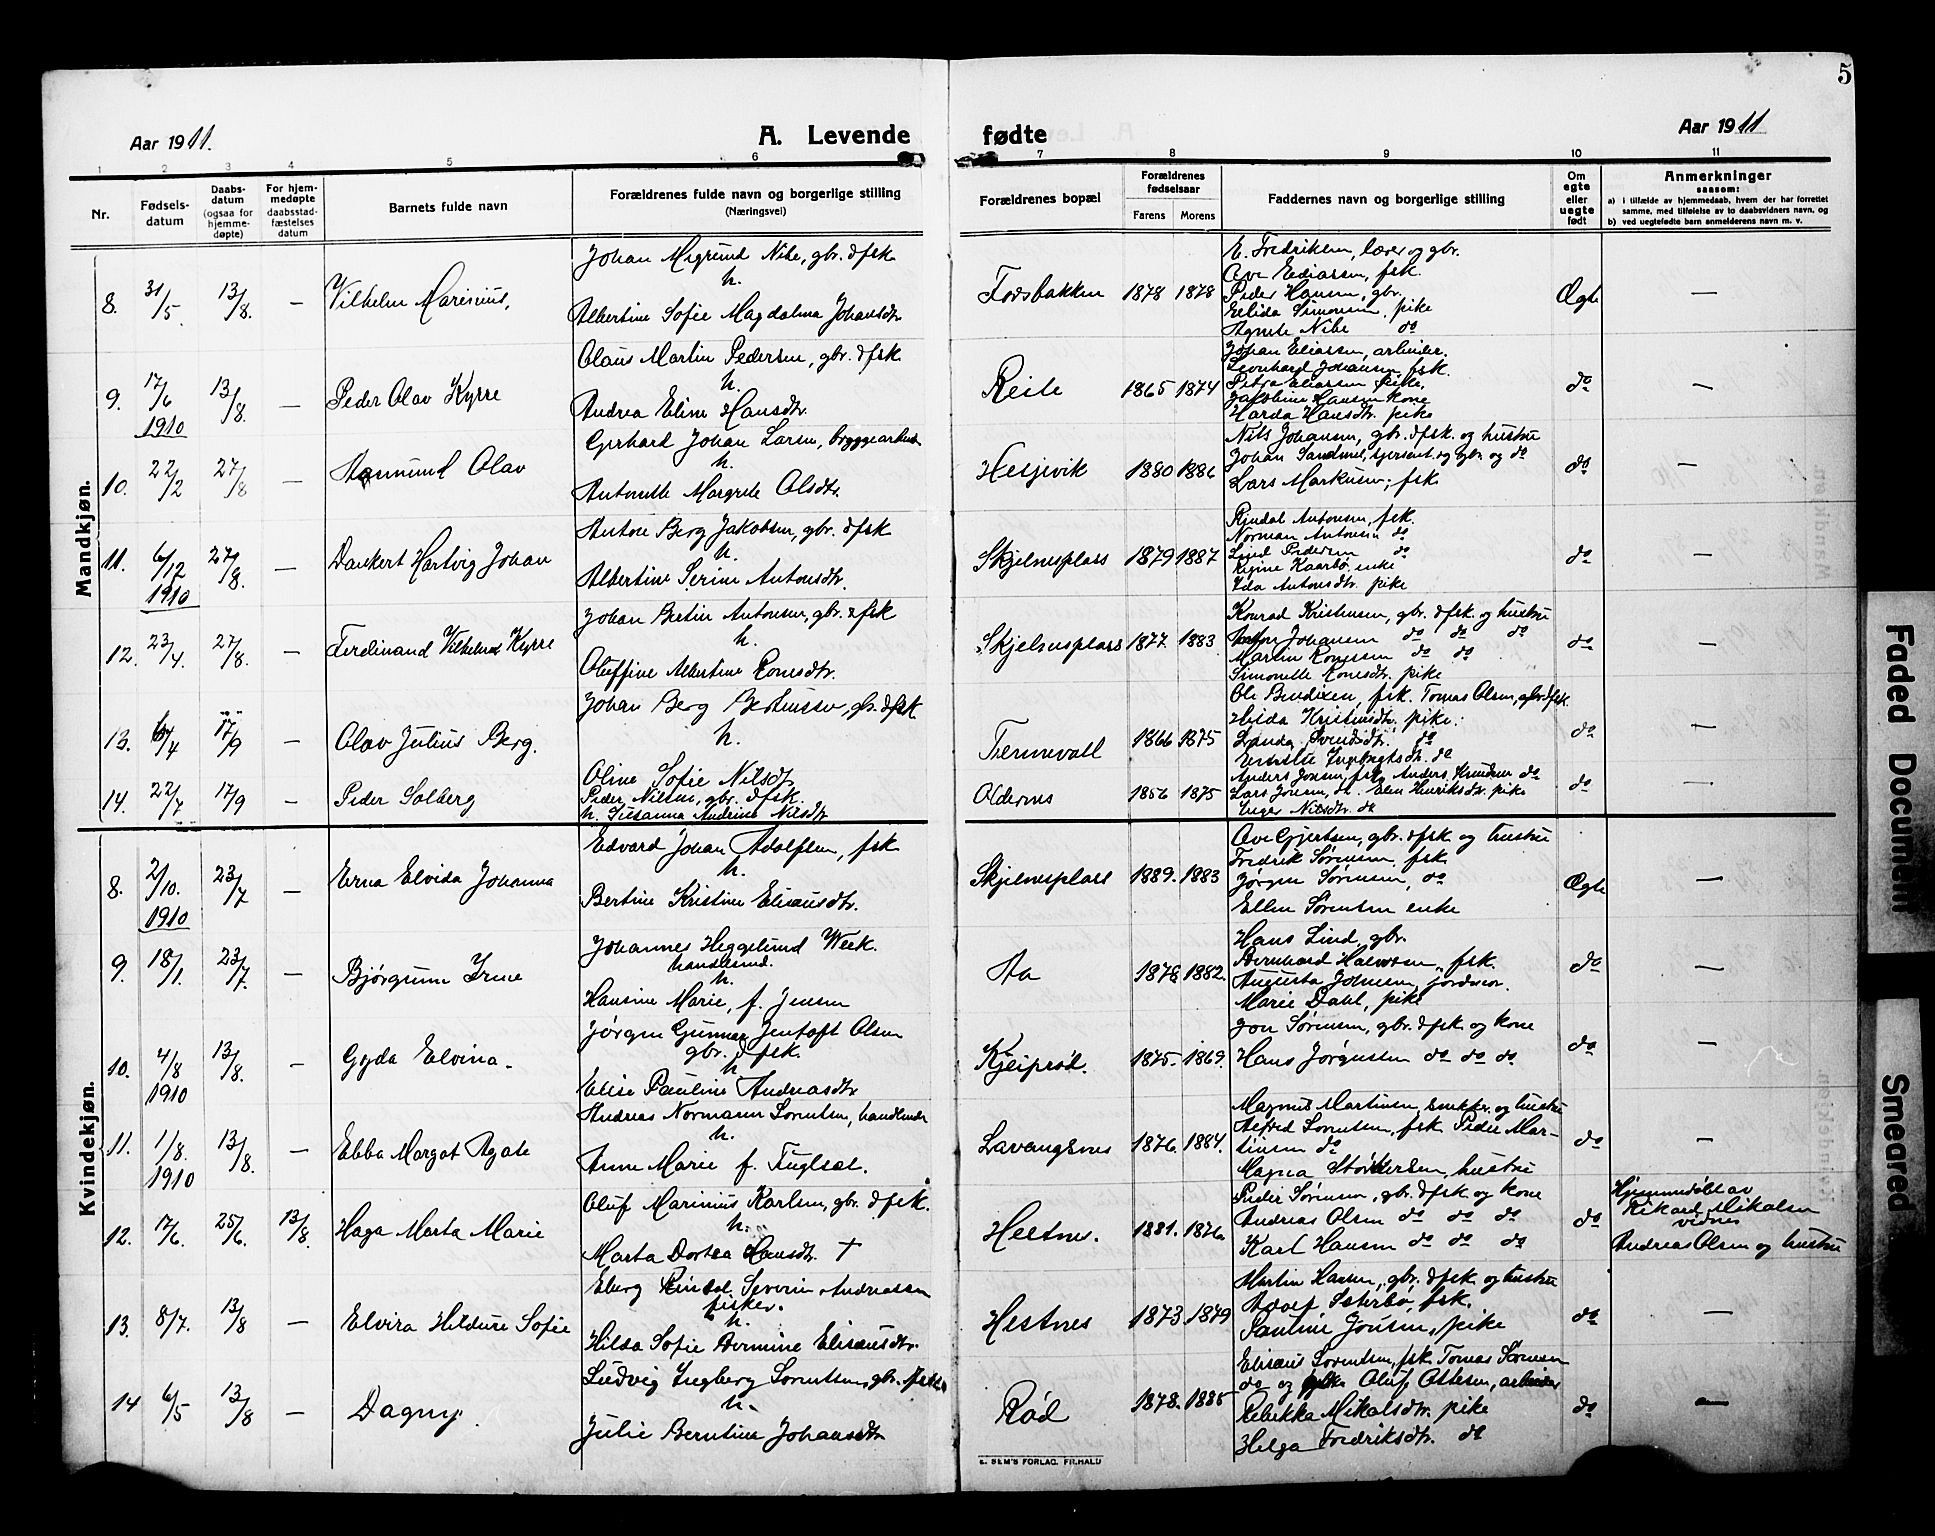 5
Aar 1911.
A. Levende fødte
Aar 1911
1 2 3 4 5 6 7 8 9 10 11
Nr.
Fødsels-
datum
Daabs-
datum
(ogsaa for
hjemme-
døpte)
For hjem-
medøpte
daabsstad-
fæstelses
datum
Barnets fulde navn
Forældrenes fulde navn og borgerlige stilling
(Næringsvei)
Forældrenes bopæl
Forældrenes
fødselsaar
Farens Morens
Faddernes navn og borgerlige stilling
Om
egte
eller
uegte
født
Anmerkninger
saasom:
a) i tilfælde av hjemmedaab, hvem der har forrettet
samme, med tilføielse av to daabsvidners navn, og
b) ved uegtefødte barn anmelderens navn m. v.
Mandkjøn.
8. 31/5 13/8. — Vilhelm Marinius,
Johan Nibe, gbr. & fsk
h.
Albertine Sofie Magdalena Johansdtr
Fodsbakken 1878 1878
E. Fredriksen, lærer og gbr.
Ove Ediassen, fsk.
Peder Hansen, gbr.
Simonsen, pike
Agnete Nibe do
Ægte —
9. 17/6 13/8. — Peder Olav Kyrre
1910
Olaus Martin Pedersen, gbr. & fsk
h.
Andrea Eline Hansdtr.
1865 1874
Johan Eliassen, arbeider.
Leonhard Johansen, fsk.
Petra Eliassen pike,
Jakobine Hansen kone
Harda Hansdtr. pike
do —
10. 22/2 27/8 — Olav
Gerhard Johan Larsen,
h.
Antonette Margrete Olsdtr.
Hesjevik 1880 1886
Nils Johansen, gbr. & fsk. og hustru
Johan og gbr. og do
Lars Markusen, fsk
do —
11. 6/12 27/8. — Dankert Hartvig Johan
1910
Anton Berg Jakobsen, gbr. & fsk
h.
Albertine Serine Antonsdtr.
Skjelnesplass 1879 1887
Antonsen, fsk.
Norman Antonsen do
Lind Pedersen do
Regine Kaarbø enke
Ida Antonsdtr. pike
do —
12. 23/4. 27/8. — Ferdinand Vilhelm Kyrre
Johan Antonsen, gbr. & fsk
h.
Oluffine Albertine
Skjelnesplass 1877. 1883
Konrad Kristensen, gbr. & fsk. og hustru
Johansen do do do
Martin do do
Simonette pike
do —
13. 6/4 17/9 — Olav Julius Berg.
Johan Berg gbr. & fsk
h.
Oline Sofie Nilsdtr.
1866 1875
Ole Bendixen, fsk. Tomas Olsen, gbr. & fsk.
Hilda Kristensdtr. pike.
do
do
do —
14. 22/7 17/9 — Peder Solberg
Peder Nilsen, gbr. & fsk.
h. Susanna Andrine Nilsdtr
Oldernes 1856 1875
Anders Jensen, fsk, Anders Knudsen do
Lars Jensen, do. Elen Henriksdtr. pike
Inger Nilsdtr. do
do —
Kvindekjøn.
8. 2/10. 23/7 — Erna Elvida Johanna
1910
Edvard Johan Adolfsen, fsk
h.
Bertine Kristine Eliæusdtr.
Skjelnesplass 1889. 1883
Ove Gjertsen, gbr. & fsk og hustru
Fredrik Sørensen, fsk.
Jørgen Sørensen, do
Ellen Sørensen enke
Ægte —
9. 18/1. 23/7. — Bjørgunn Irene
Johannes Heggelund Week.
handelsmd.
h.
Hansine Marie, f. Jensen
Aa 1878 1882.
Hans Lind, gbr.
Bernhard Halvorsen, fsk.
Augusta Johnsen, jordmor.
Marie Dahl, pike
do —
10. 4/8 13/8. — Gyda Elvina.
1910
Jørgen Gunnar Jentoft Olsen
gbr. & fsk.
h.
Elise Pauline Andreasdtr
Kjeiprød. 1875. 1869.
Jon Sørensen, gbr. & fsk og kone
Hans Jørgensen do do do
do —
11. 1/8. 13/8. — Ebba Margot Agate
1910
Andreas Normann Sørensen, handlende
h.
Anne Marie f. Fuglset.
Lavangsnes 1876. 1884.
Magnus Martinsen, snekker og hustru
Alfred Sørensen, fsk Peder Mar-
tinsen do
Magna hustru
do —
12. 17/6. 25/6. 13/8. Haga Marta Marie
Oluf Marinius Karlsen, gbr. & fsk.
h.
Marta Dortea Hansdtr. †
Hestnes. 1881. 1876.
Peder Sørensen, gbr. & fsk og kone
Andreas Olsen do do do
Karl Hansen do do do
do
Hjemmedøbt av
Rikard Mikalsen
vidnes
Andreas Olsen og hustru
13. 8/7. 13/8 — Elvira Hildure Sofie
Eberg Severin Andreassen
fisker.
h.
Hilda Sofie Eliæusdtr.
Hestnes 1873. 1879
Martin Hansen, gbr. & fsk. og hustru
Adolf fsk.
Pauline Jensen, pike
do —
14 6/5 13/8 — Dagny.
Ludvig Ingberg Sørensen, gbr. fsk.
h.
Julie Berntine Johansdtr
Rød 1878. 1885
Eliæus Sørensen, fsk Tomas Sørensen
do og Oluf arbeider
Rebekka Mikalsdtr. pike
Helga Fredriksdtr. do
do —
E. SEM'S FORLAG, FR.HALD
Faded Document
Smeared